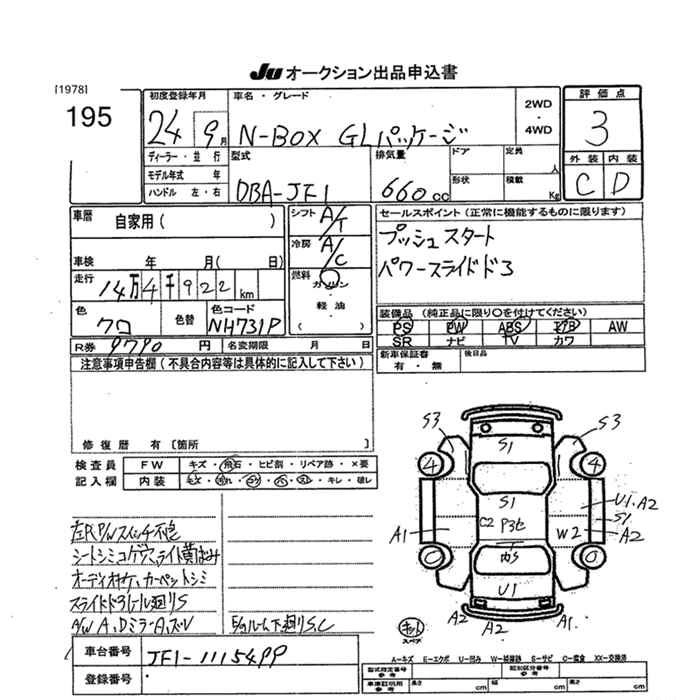 JU オークション出品申込書
[1978]
195
初度登録年月
24 9月
ディーラー・並行
モデル年式 年
ハンドル 左・右
車名・グレード
N-BOX GLパッケージ
2WD
・
4WD
評価点
3
外装 内装
C D
型式
DBA-JF1
排気量
660cc
ドア
定員
人
形状
積載
Kg
車歴
自家用( )
車検 年 月( 日)
走行
14万4千922km
色
クロ
色替
色コード
NH731P
R券 9790 円
名変期限 月 日
シフト A/T
冷房 A/C
燃料
ガソリン
・
軽油
( )
セールスポイント(正常に機能するものに限ります)
プッシュスタート
パワースライドドア
装備品(純正品に限り○を付けてください)
PS PW ABS エアB AW
SR ナビ TV カワ
新車保証書
有・無
後日品
注意事項申告欄(不具合内容等は具体的に記入して下さい)
修復歴 有〔箇所 〕
検査員
記入欄
FW キズ・飛石・ヒビ割・リペア跡・×要
内装 キズ・汚れ・コゲ・穴・スレ・キレ・破レ
シートシミコゲ穴、ライト黄ばみ
カーペットシミ
スライドドアレール廻りS
A/W A、DミラーA、ズレ
下廻りS、C
車台番号 JF1-1115499
登録番号
S3
S3
S1
4
4
S1
C2
U1、A2
S1
A1
W2
A2
0
0
U1
A2
A2
A1
キット
スペア
A-キズ E-エクボ U-凹み W-補修跡 S-サビ C-腐食 XX-交換済
型式指定番号
類別区分番号
車庫証明用
参考
長さ cm
幅 cm
高さ cm